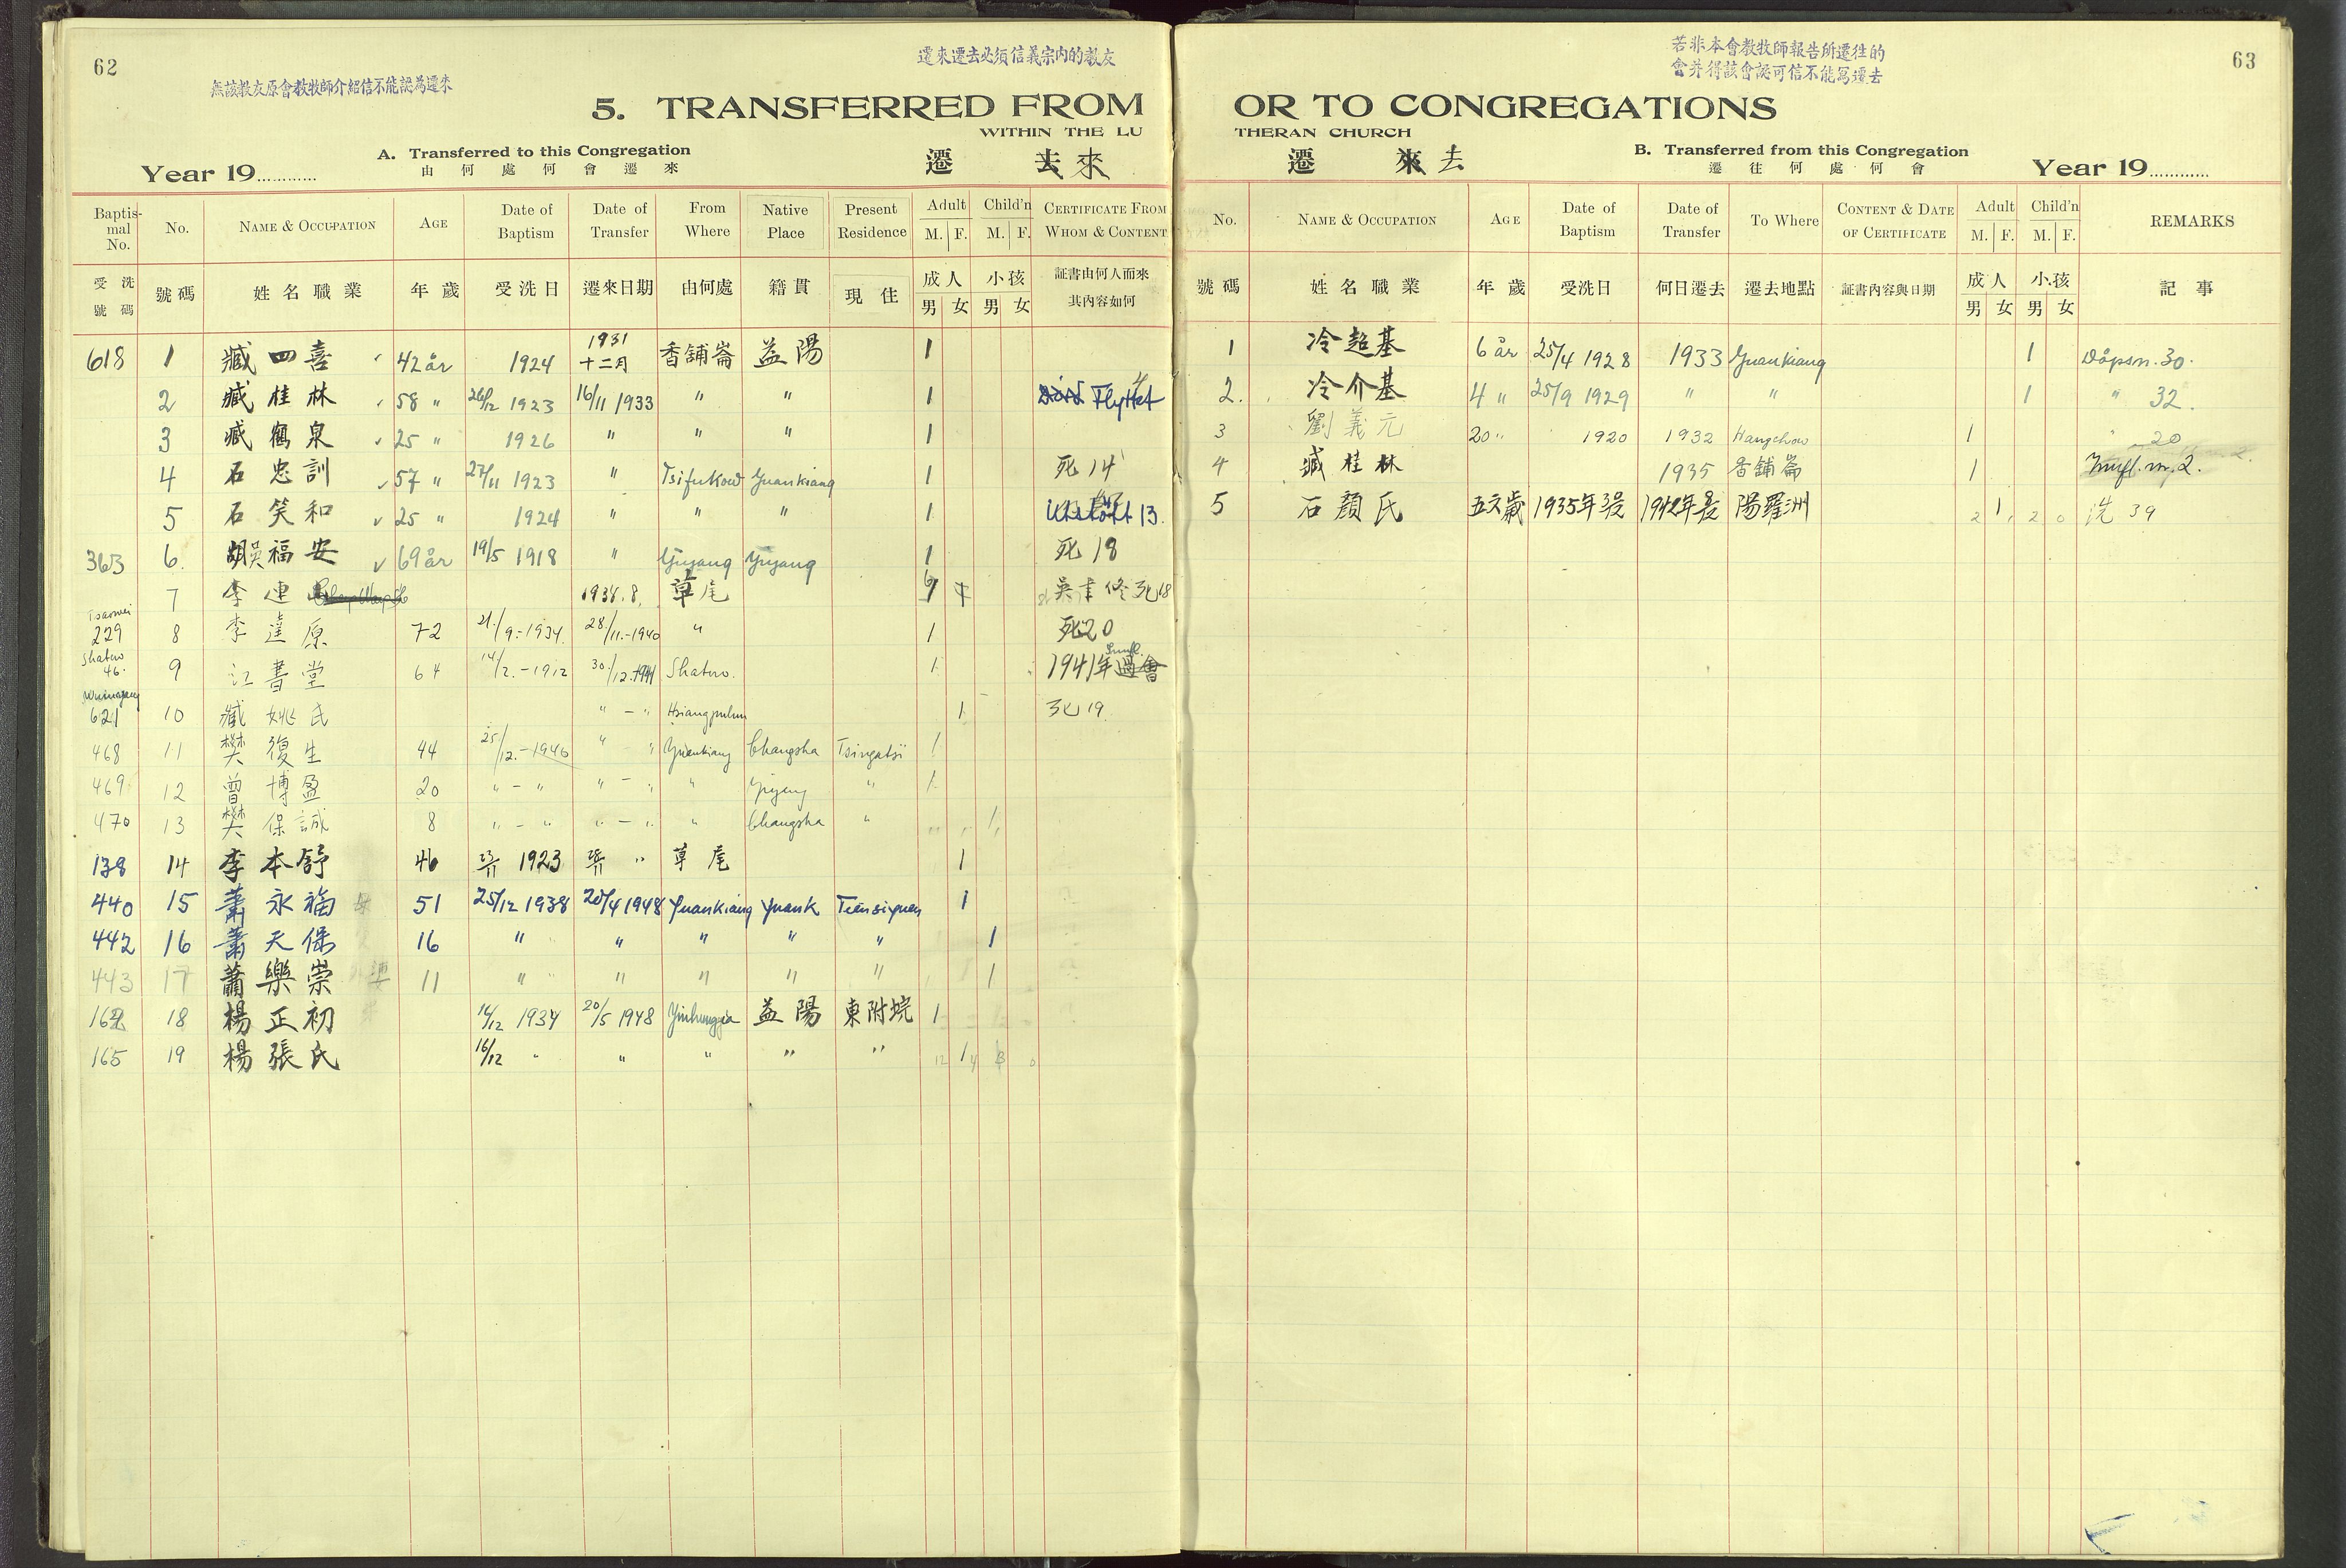 62
遷來遷去必須信義宗内的敎友
無該敎友原會敎牧師介紹信不能認爲遷來
5. TRANSFERRED FROM
WITHIN THE LU
A. Transferred to this Congregation
由何處何會遷來
Year 19............
遷 去 來
Baptismal No. No. NAME & OCCUPATION AGE Date of Baptism Date of Transfer From Where Native Place Present Residence Adult M. F. Child'n M. F. CERTIFICATE FROM WHOM & CONTENT
受洗號碼 號碼 姓名職業 年歲 受洗日 遷來日期 由何處 籍貫 現住 成人 男 女 小孩 男 女 証書由何人而來 其內容如何
618 1 臧四喜 42 år 1924 1931 十二月 香舖崙 益陽 1
2 臧桂林 58 " 26/12 1923 16/11 1933 " " 1 Flyttet 4
3 臧鶴泉 25 " 1926 " " " 1
4 石忠訓 57 " 27/11 1923 " Tsifukow Yuankiang 1 死 14
5 石笑和 25 " 1924 " " " 1 13.
363 6. 胡吳福安 69 år 19/5 1918 " Yiyang Yiyang 1 死 18
7 李連 1938.8. 草尾 死18
Tsaowei 229 8 李達原 72 21./9.-1934. 28./11.-1940 " 1 死20
Shatwo 46. 9 江書堂 64 14/2.-1912 30./12.-1941 Shatwo. 1 1941年
621 10 臧姚氏 " - " Hsiangpulun 1 死19
468 11 樊復生 44 25/12.-1940 " " Yuankiang Changsha Tsingatsï 1
469 12 曾博盈 20 " - " " - " " Yiyang " 1
470 13 樊保誠 8 " - " " - " " Changsha " 1
138 14 李本舒 46 1923 " 草尾 1
440 15 蕭永福 51 25/12 1938 20/4 1948 Yuankiang Yuank Tiensiyuen 1
442 16 蕭天保 16 " " " " " 1
443 17 蕭樂崇 11 " " " " " 1
162 18 楊正初 16/12 1934 20/5 1948 益陽 東附垸 1
165 19 楊張氏 16/12 " " " " " 12 1 4 3 0
63
若非本會敎牧師報告所遷往的
會幷得該會認可信不能寫遷去
OR TO CONGREGATIONS
THERAN CHURCH
B. Transferred from this Congregation
遷往何處何會
Year 19............
遷 來 去
No. NAME & OCCUPATION AGE Date of Baptism Date of Transfer To Where CONTENT & DATE OF CERTIFICATE Adult M. F. Child'n M. F. REMARKS
號碼 姓名職業 年歲 受洗日 何日遷去 遷去地點 証書內容與日期 成人 男 女 小孩 男 女 記事
1 冷超基 6 år 25/4 1928 1933 Yuankiang 1 Dåpsn. 30.
2. 冷介基 4 " 25/9 1929 " " 1 " 32.
3 劉義元 20 " 1920 1932 Hangchow 1 " 20
4 臧桂林 1935 香舖崙 1 Innfl. nr. 2.
5 石顏氏 五六歲 1935年 1942年 陽羅洲 2 1 2 0 洗 39